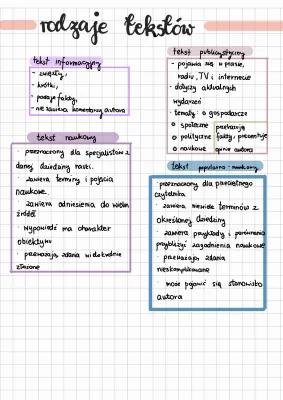 rodzaje tekstów
tekst informacyjny
- zwięzły,
- krótki,
- podaje fakty,
- nie zawiera komentarzy autora
tekst publicystyczny
- pojawia się w prasie,
radiu, TV i internecie
- dotyczy aktualnych
wydarzeń
- tematy: o gospodarcze
o społeczne
o polityczne
o naukowe
przekazują
fakty, prezentuje
opinie autora
tekst naukowy
• przeznaczony dla specjalistów z
danej dziedziny nauki.
• zawiera terminy i pojęcia
naukowe.
• zawiera odniesienia do wielu
źródeł
• wypowiedź ma charakter
obiektywny
• przeważają zdania wielokrotnie
złożone
tekst popularno-naukowy
• przeznaczony dla przeciętnego
czytelnika
• zawiera niewiele terminów z
określonej dziedziny
• zawiera przykłady i porównania
przybliżyć zagadnienia naukowe
• przeważają zdania
nieskomplikowane
• może pojawić się stanowisko
autora